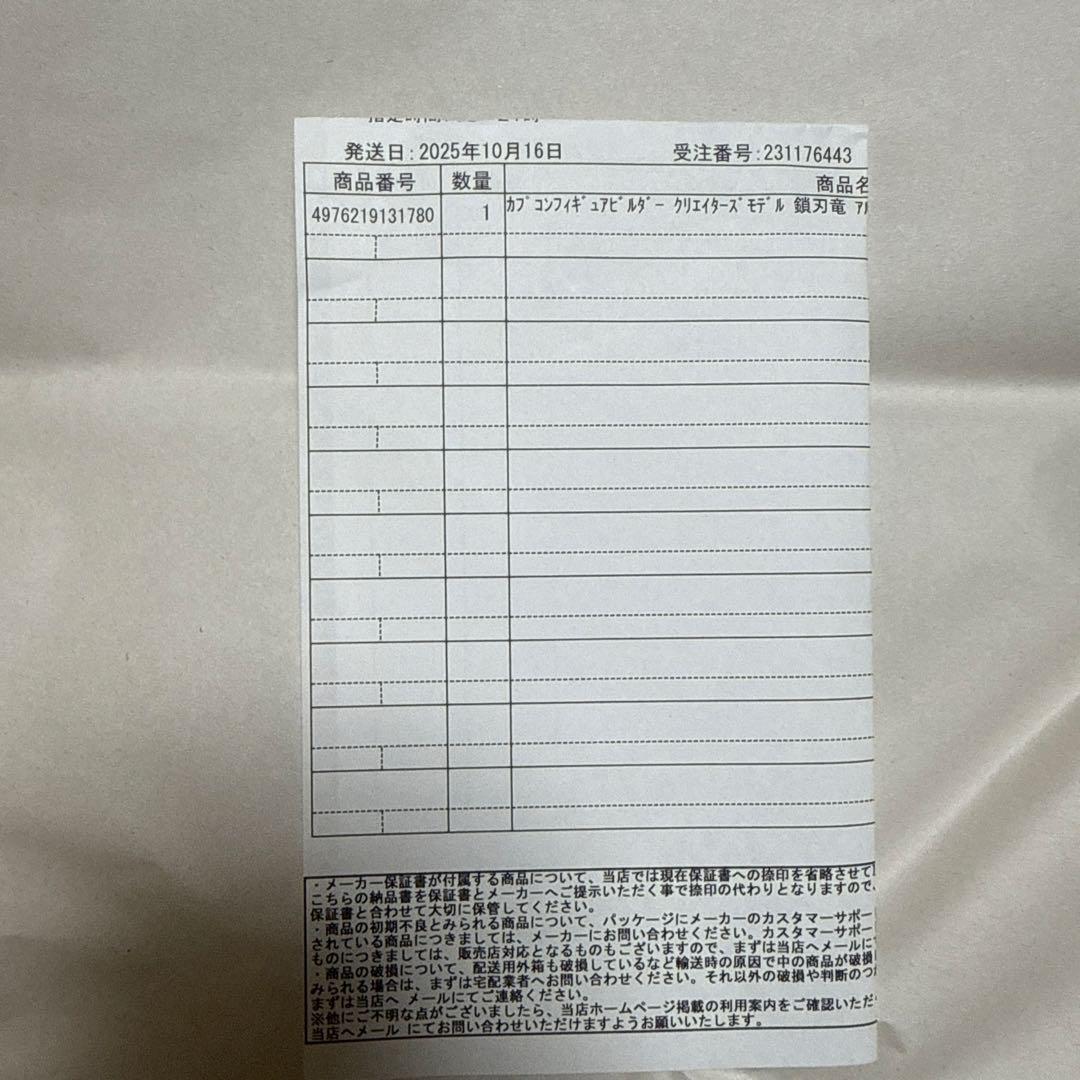 発送日:2025年10月16日
受注番号:231176443
商品番号 数量 商品名
4976219131780 1 ｶﾌﾟｺﾝﾌｨｷﾞｭｱﾋﾞﾙﾀﾞｰ ｸﾘｴｲﾀｰｽﾞﾓﾃﾞﾙ 鎖刃竜 ｱﾙ
・メーカー保証書が付属する商品について、当店では現在保証書への捺印を省略させて
こちらの納品書を保証書とメーカーへご提示いただく事で捺印の代わりとなりますので、
保証書と合わせて大切に保管してください。
・商品の初期不良とみられる商品について、パッケージにメーカーのカスタマーサポー
されている商品につきましては、メーカーにお問い合わせください。カスタマーサポー
ものにつきましては、販売店対応となるものもございますので、まずは当店へメールに
・商品の破損について、配送用外箱も破損しているなど輸送時の原因で中の商品が破損
みられる場合は、まずは宅配業者へお問い合わせください。それ以外の破損や判断のつ
まずは当店へ メールにてご連絡ください。
※他にご不明な点がございましたら、当店ホームページ掲載の利用案内をご確認いただ
当店へメール にてお問い合わせいただけますようお願いいたします。